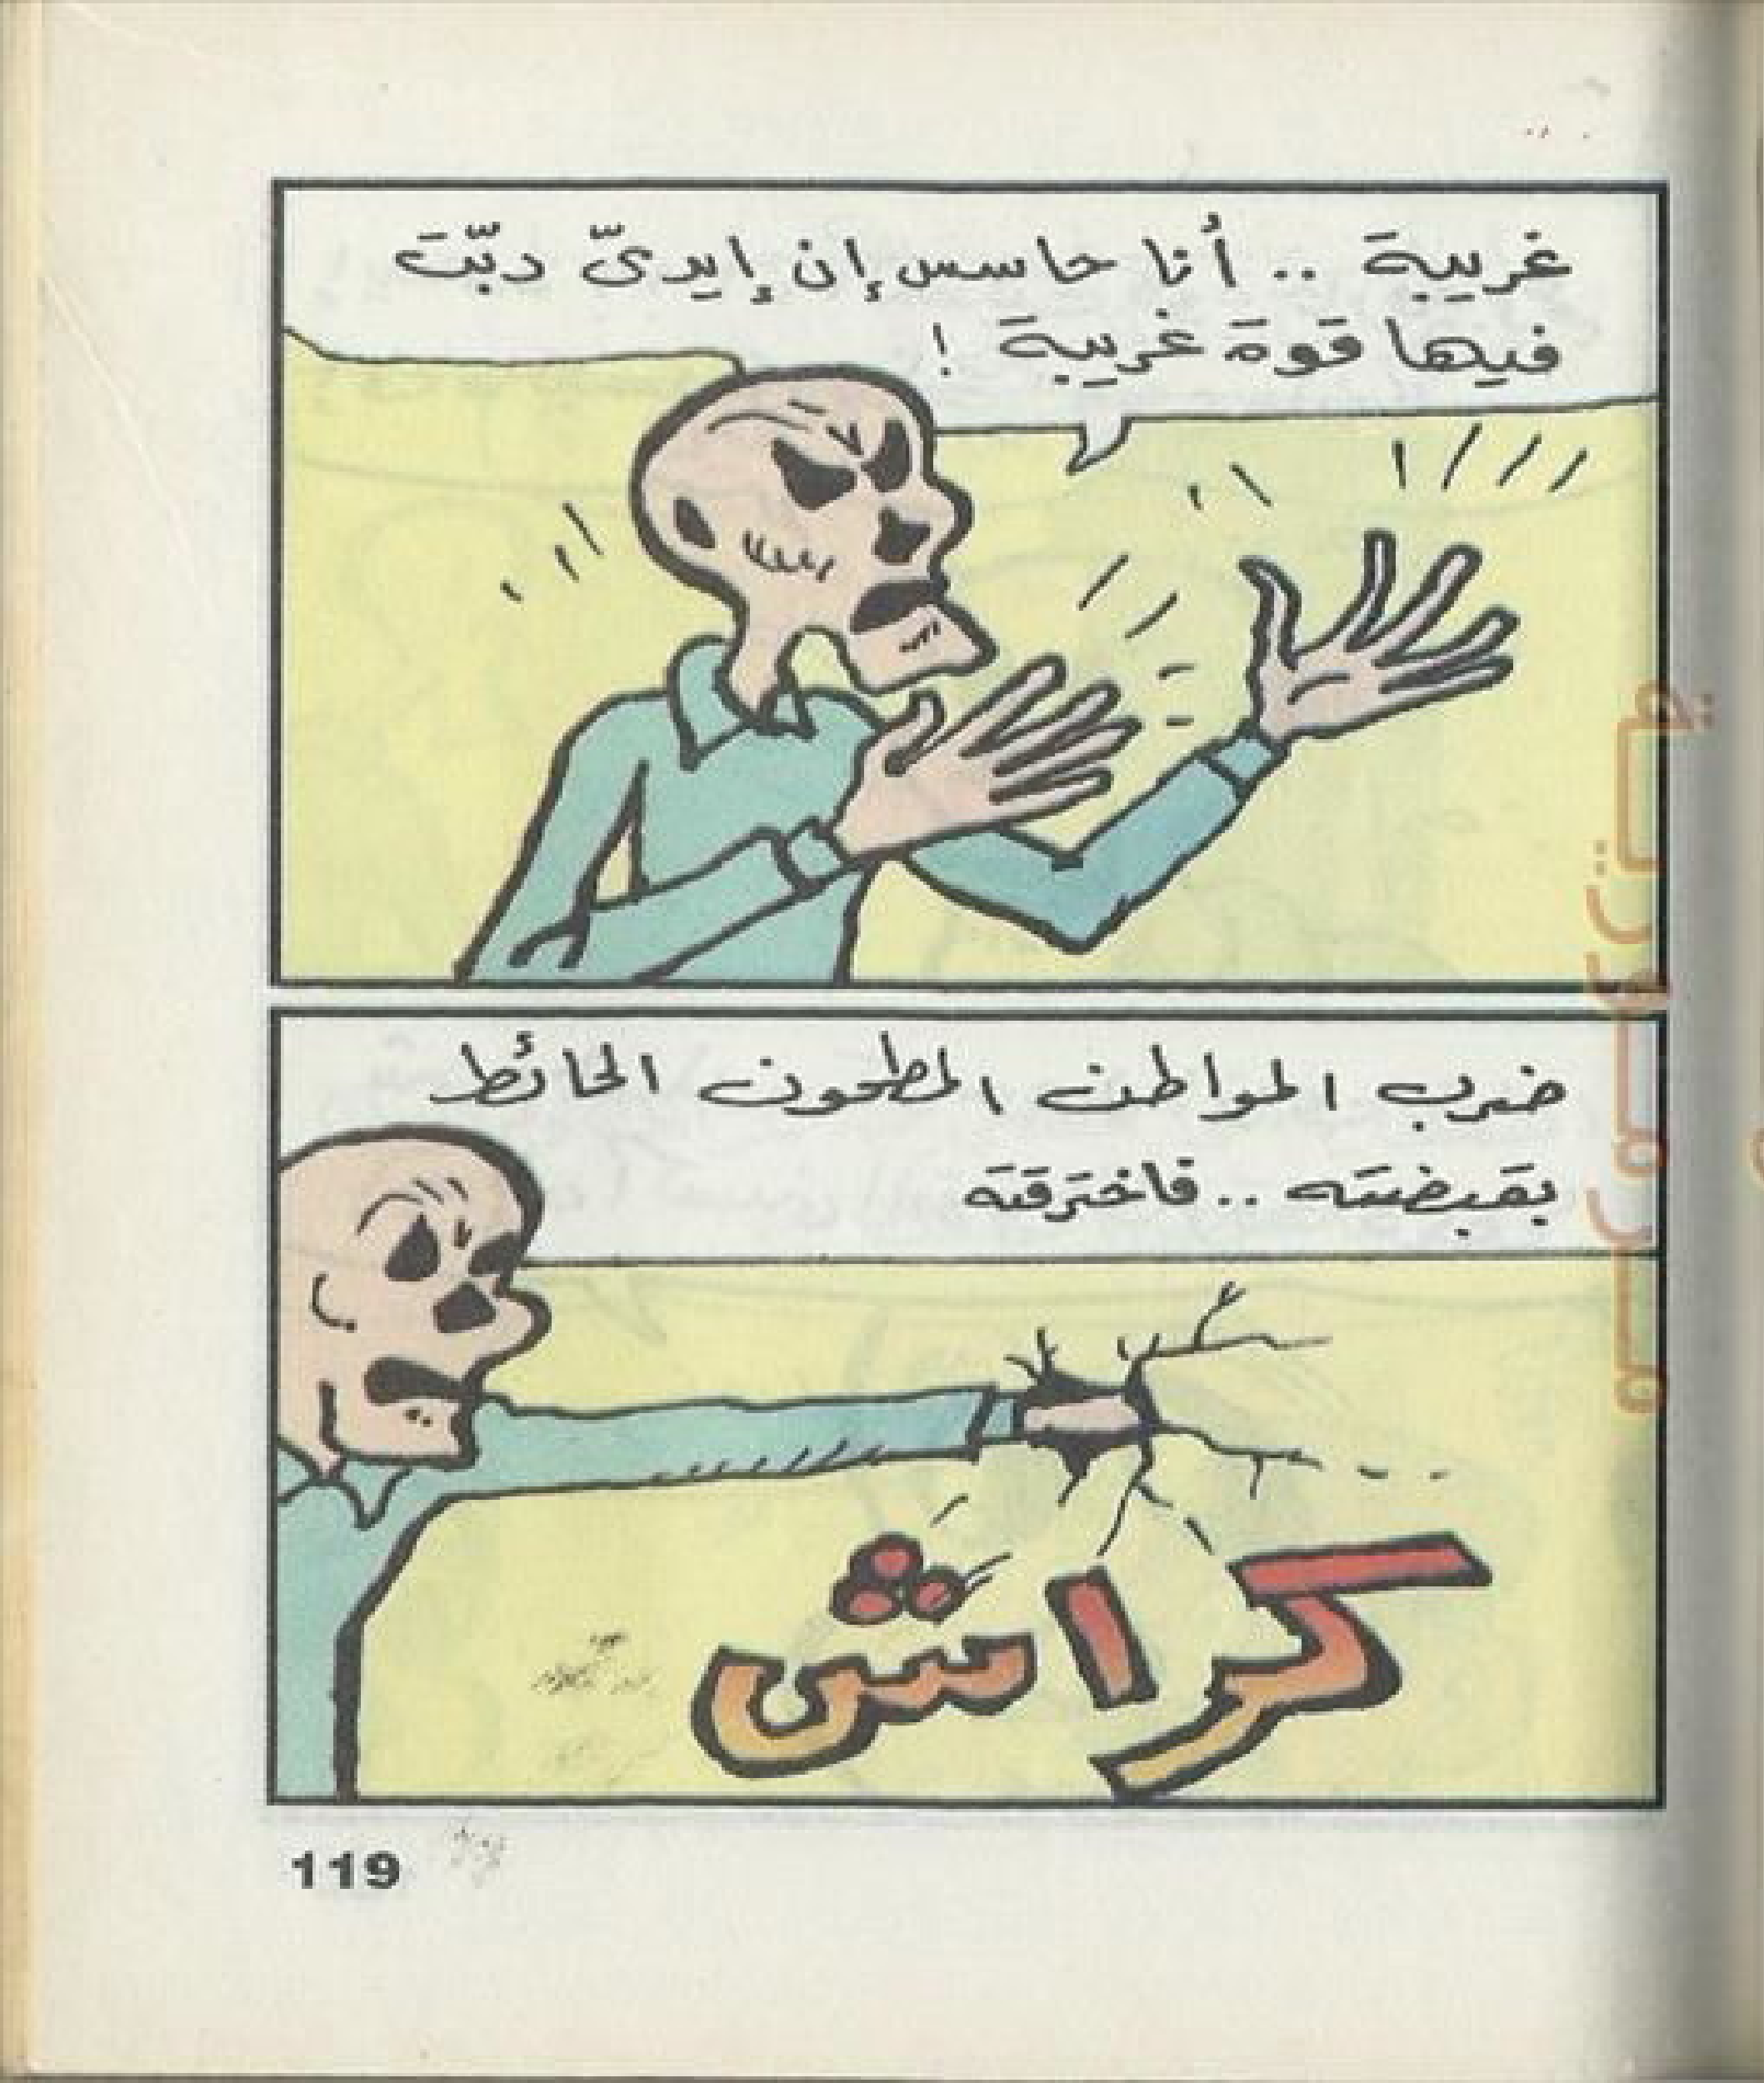 غريبة .. أنا حاسس إن إيديّ دبّت
فيها قوة غريبة !
ضرب المواطن المطحون الحائط
بقبضته .. فاخترقته
كراش
119